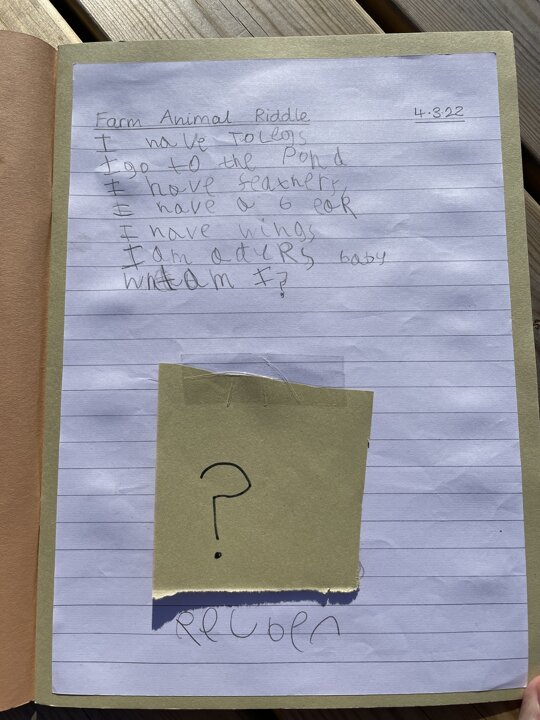 Farm Animal Riddle 4.3.22
I have Tolegs
I go to the Pond
I have feathers
I have a b eak
I have wings
I am aducks baby
whatam I?
?
Reuben